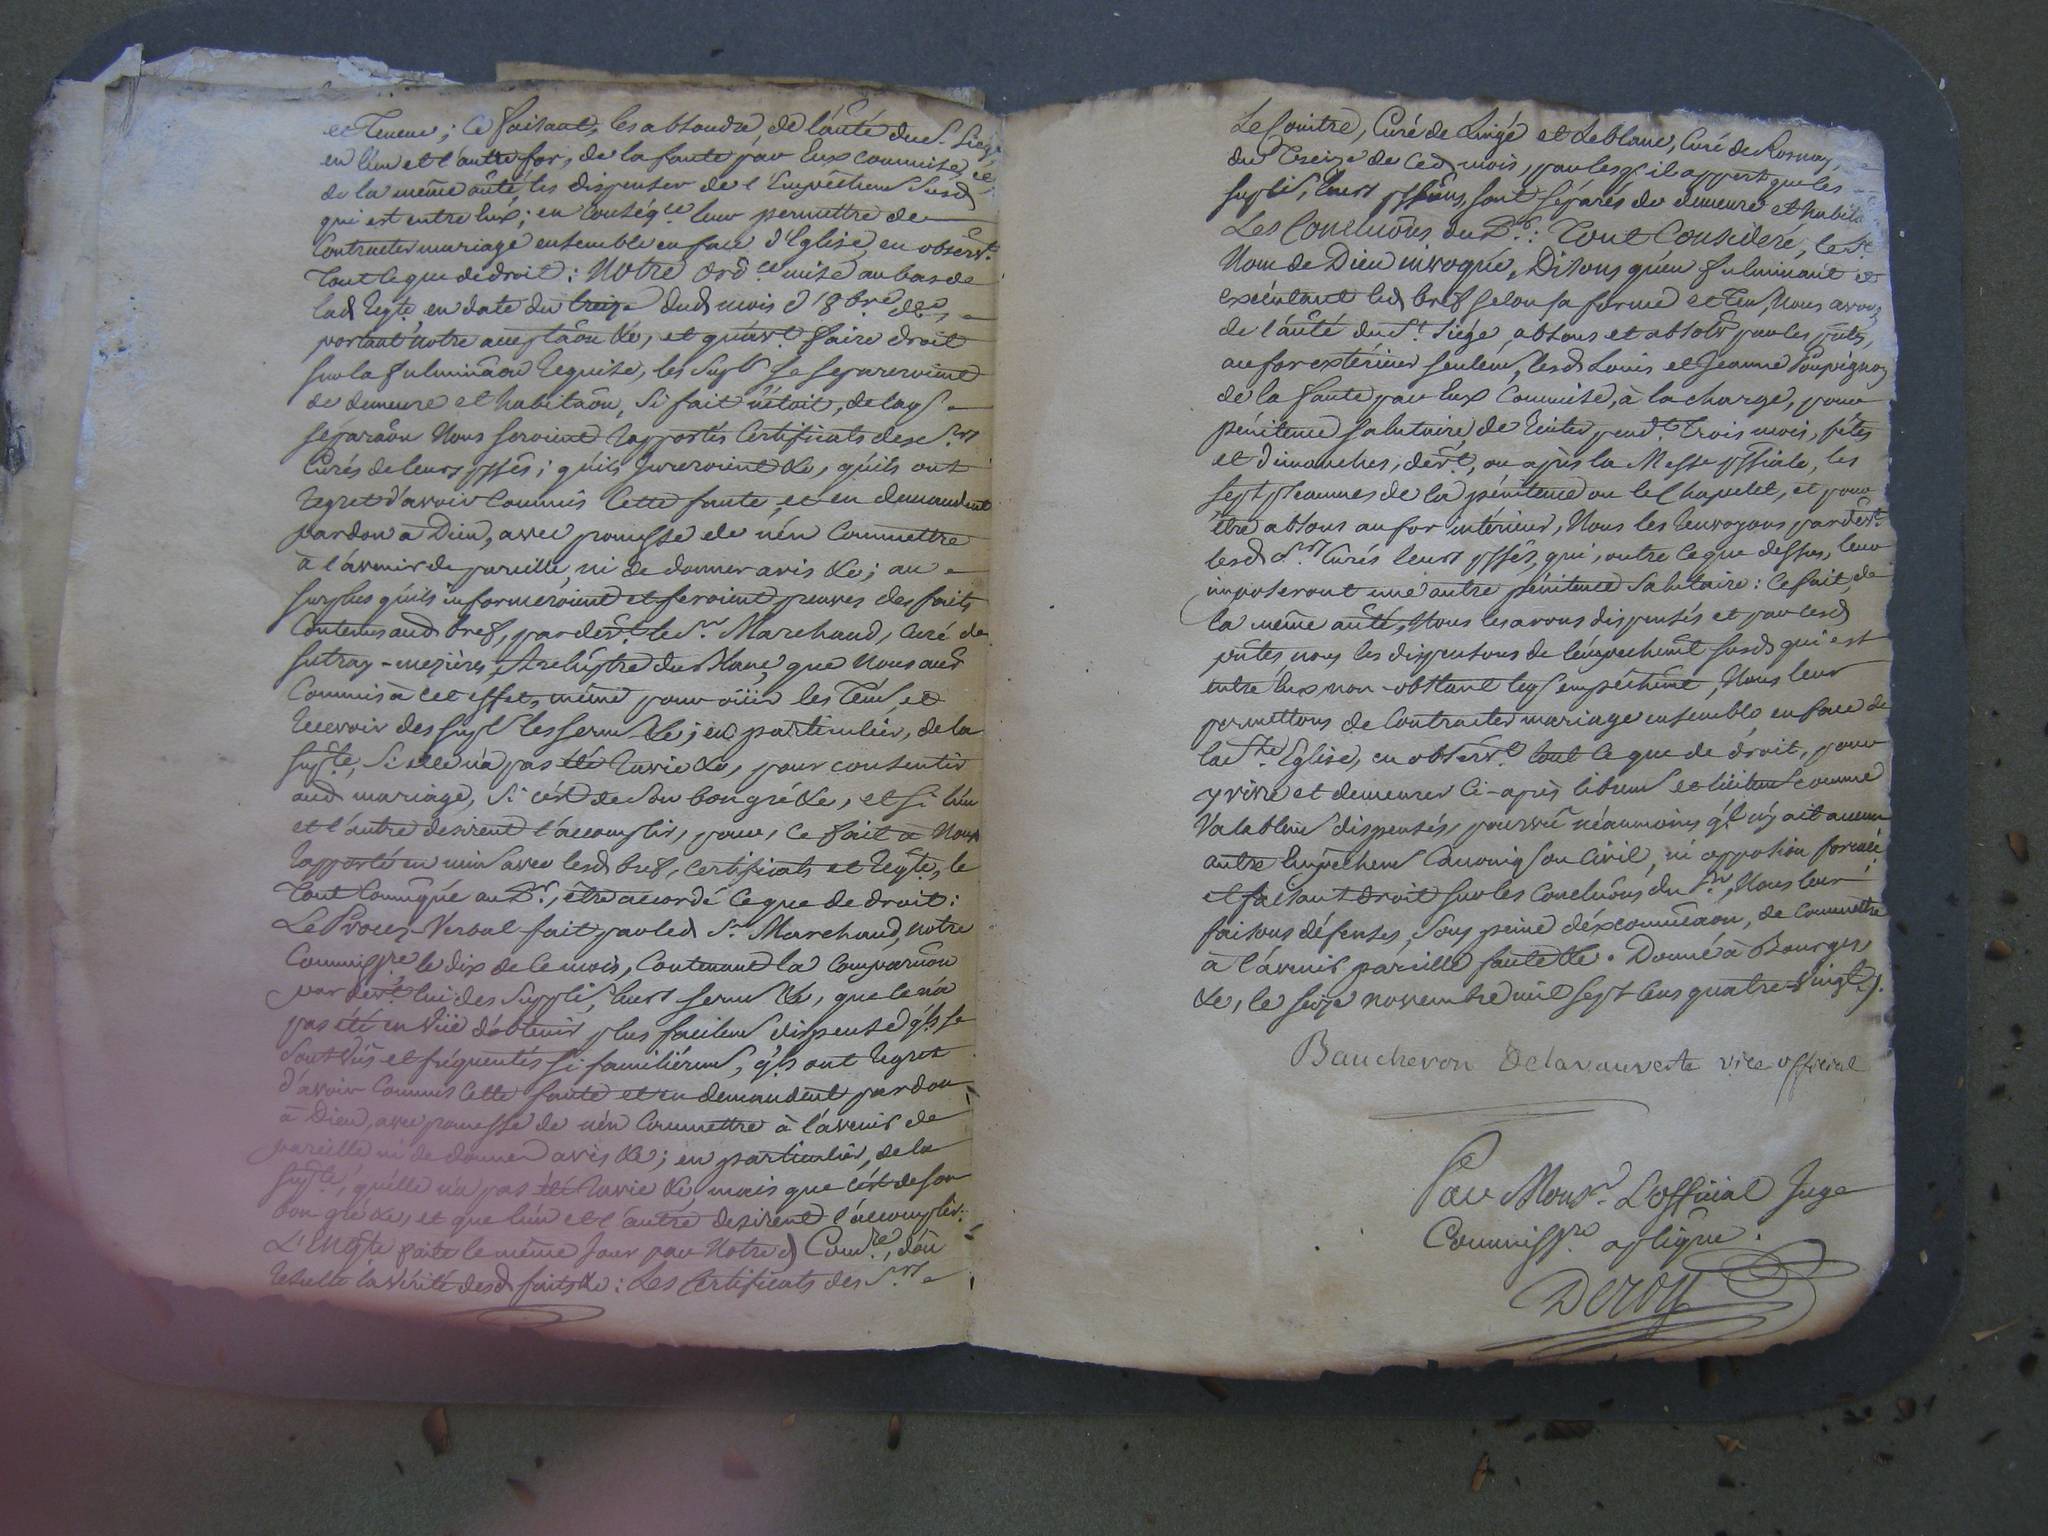 et Teneur; Ce faisant, les absoudre, de l'aûté du St. Siége,
en l'un et l'autre for, de la faute par Eux commise, et
de la même aûté les dispenser de l'Empêchem susd
qui est entre Eux; en conséq.ce leur permettre de
Contracter mariage ensemble en face d'Eglise, en observt.
Tout ce que de droit: Notre ord.ce mise au bas de
lad Reqte, en date du treize dud mois d'8bre dr,
portant notre acceptaôn &c, et qu'avt. faire droit
sur la fulminaôn Requise, les Suplts se separeroient
de demeure et habitaôn, Si fait n'étoit, de laq
séparaôn Nous seroient Rapportés Certificats des Srs
Curés de leurs pssês; qu'ils Jureroient &c, qu'ils ont
regret d'avoir Commis Cette faute, et en demandent
pardon à Dieu, avec promesse de n'en Commettre
à l'avenir de pareille, ni de donner avis &c; au
surplus qu'ils informeroient et feroient preuves des faits
Contenus aud bref, par devt. le Sr. Marchand, Curé de
Sutray-mezières, Archiptre du Blanc, que Nous aûs
Commis à cet effet, même pour oüir les Tém, et
Recevoir des Supl les serm &c; en particulier, de la
Suplte, Si elle n'a pas été Ravie &c, pour consentir
aud mariage, Si c'est de Son bon gré &c, et Si l'un
et l'autre desirent l'accomplir, pour, Ce fait à Nous
Rapporté en min avec lesd bref, certificats et Reqte, le
Tout Comuniqué au Pr., être accordé Ce que de droit:
Le Procez-Verbal fait par led Sr. Marchand, notre
Commissre, le dix de Ce mois, Contenant la Comparuôn
par devt. lui des Supplis, leurs serm &c, que Ce n'a
pas été en Vüe d'obtenir plus facilem dispense qu'ils se
Sont Vûs et fréquentés Si familiérem, q'ls ont Regret
d'avoir Commis Cette faute et en demandent pardon
à Dieu, avec promesse de n'en Commettre à l'avenir de
pareille ni de donner avis &c; en particulier, de la
Suplte, qu'elle n'a pas été Ravie &c, mais que C'est de son
bon gré &c, et que l'un et l'autre desirent l'accomplir:
L'Enqte faite le même Jour par Notred Comre, d'ou
Résulte la Vérité desd faits &c: Les Certificats des Srs
Le Cointre, Curé de Lingé et Leblanc, Curé de Rosnay,
du Treize de Ced mois, par lesq il appert que les
supplis, leurs pssiens, sont séparés de demeure et habita
Les Concluôns du Pr: Tout Consideré, le St
Nom de Dieu invoqué, Disons qu'en fulminant et
exécutant led bref selon sa forme et Ten, Nous avons
de l'aûté du St. Siége, absous et absolv par les ptes,
au for extérieur seulem, lesd Louis et Jeanne Poupignon
de la faute par Eux Commise, à la charge, pour
pénitence salutaire, de Réciter pendt. Trois mois, fêtes
et dimanches, devt, ou après la Messe pssiale, les
sept Pseaumes de la pénitence ou le Chapelet, et pour
être absous au for intérieur, Nous les Renvoyons par devt.
lesd Srs Curés leurs pssês, qui, outre Ce que dessus, leur
imposeront une autre pénitence Salutaire: Ce fait, de
la même aûté, Nous les avons dispensés et par cesd
ptes nous les dispensons de l'empechemt susd qui est
entre Eux non-obstant leq empéchemt, Nous leur
permettons de Contracter mariage ensemble, en face de
la Ste. Eglise, en observt. tout Ce que de droit, pour
y vivre et demeurer Ci-après librem et licitem comme
Valablem dispensés, pourvû néanmoins q'l n'y ait aucun
autre Empêchem Canoniq ou Civil, ni opposion formée:
et faisant droit sur les Concluôns du Pr, Nous leur
faisons défenses, Sous peine d'éxcommaôn, de Commettre
à l'avenir pareille faute &c. Donné à Bourges
&c, le seize novembre mil sept Cens quatre-Vingt.
Baucheron Delavauverte vice official
Par Monsr. L'official Juge
Commissre apliqûe.
Deroy